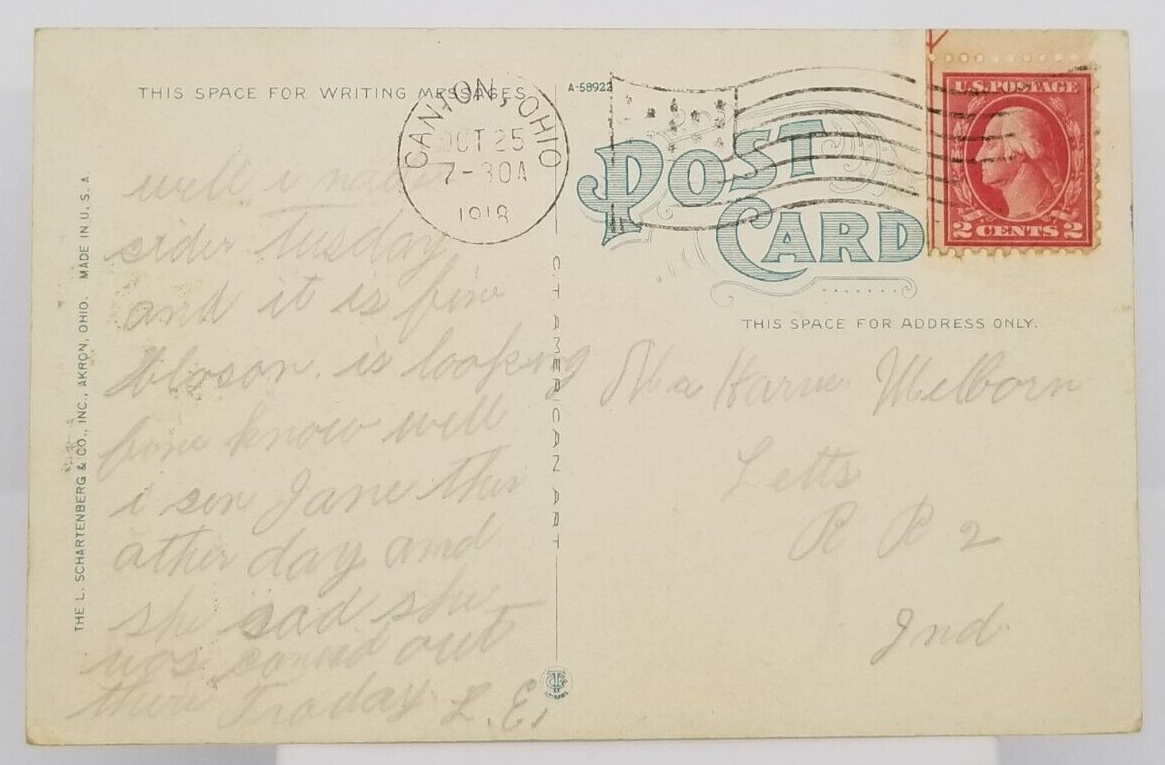 THIS SPACE FOR WRITING MESSAGES
CANTON, OHIO
OCT 25
7-30A
1918
A-58922
U.S. POSTAGE
2 CENTS 2
POST
CARD
THIS SPACE FOR ADDRESS ONLY.
THE L. SCHARTENBERG & CO., INC., AKRON, OHIO. MADE IN U. S. A
C T AMERICAN ART
will i made
sider Tusday
and it is fine
is looking
fine know will
i sen Jane ther
ather day and
she sad she
was out
there Froday L. E.
Melborn
Letts
R R 2
Ind